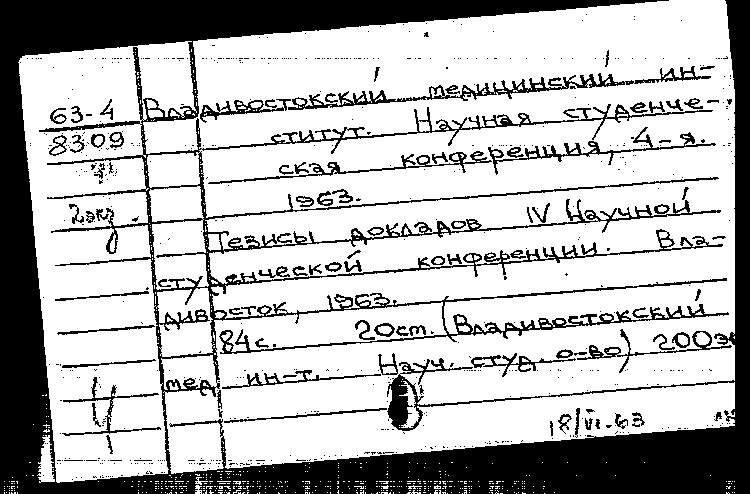 63-4 Владивостокский медицинский ин-
8309 ститут. Научная студенче-
ская конференция, 4-я.
1963.
2 экз.
Тезисы докладов IV Научной
студенческой конференции. Вла-
дивосток, 1963.
84с. 20см. (Владивостокский
мед. ин-т. Науч. студ. о-во). 200э
Ч
18/VI-63